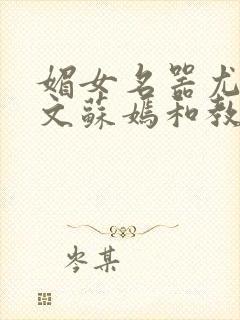 媚女名器尤
文蘇媽和教
岑某